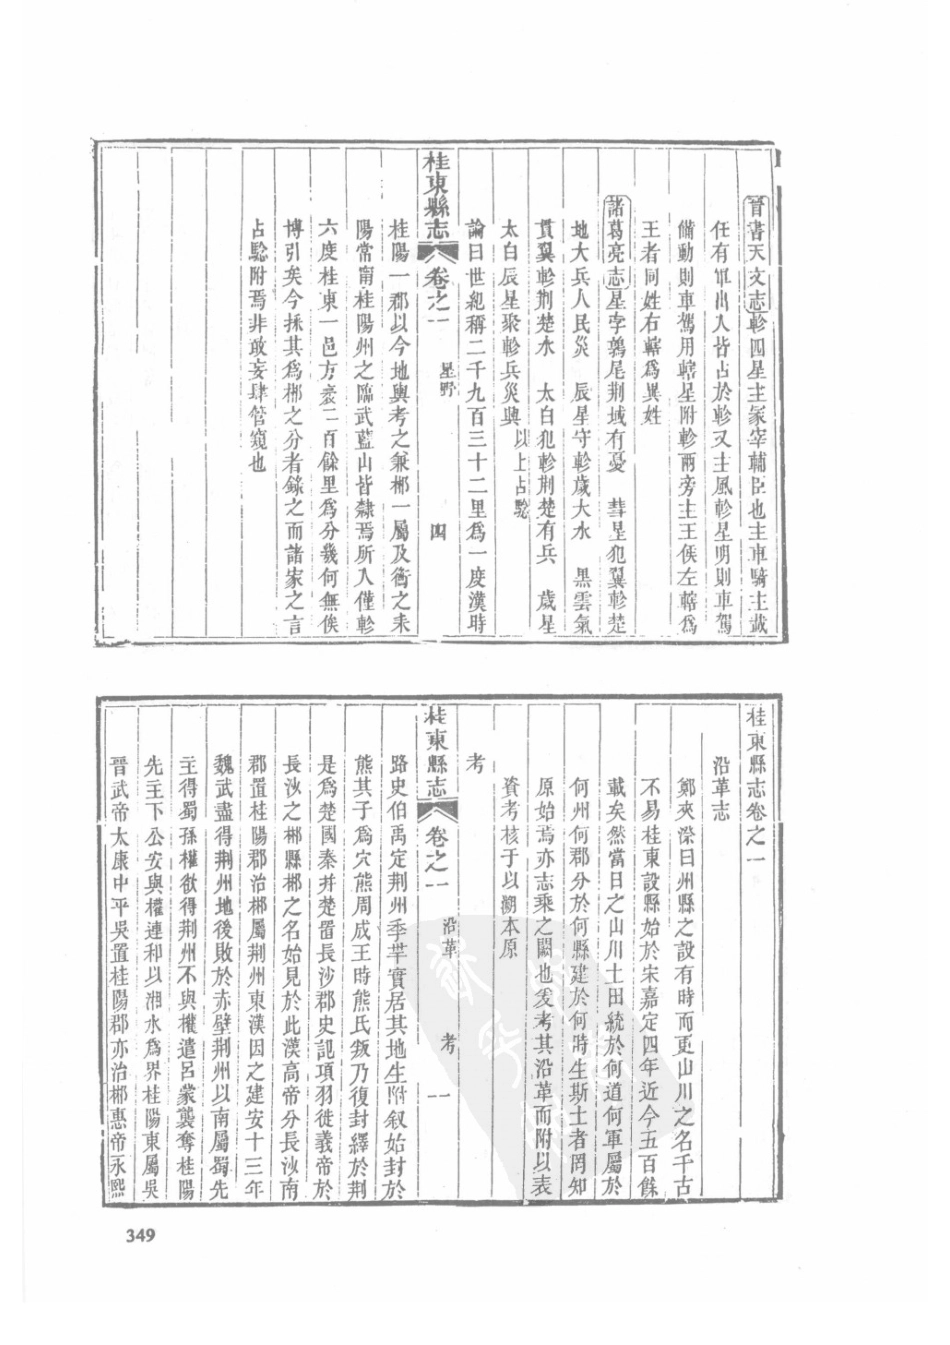 晉書天文志軫四星主冢宰輔臣也主車騎主載
任有軍出入皆占於軫又主風軫星明則車駕
備動則車駕用轄星附軫兩旁主王侯左轄爲
王者同姓右轄爲異姓
諸葛亮志星孛鶉尾荆域有憂 彗星犯翼軫楚
地大兵人民災 辰星守軫歲大水 黑雲氣
貫翼軫荆楚水 太白犯軫荆楚有兵 歲星
太白辰星聚軫兵災與 以上占騐
論曰世紀稱二千九百三十二里爲一度漢時
桂東縣志 卷之一 星野 四
桂陽一郡以今地輿考之兼郴一屬及衡之耒
陽常甯桂陽州之臨武藍山皆隸焉所入僅軫
六度桂東一邑方袤二百餘里爲分幾何無俟
博引矣今採其爲郴之分者錄之而諸家之言
占騐附焉非敢妄肆管窺也
桂東縣志卷之一
沿革志
鄭夾漈曰州縣之設有時而更山川之名千古
不易桂東設縣始於宋嘉定四年近今五百餘
載矣然當日之山川土田統於何道何軍屬於
何州何郡分於何縣建於何時生斯土者罔知
原始焉亦志乘之闕也爰考其沿革而附以表
資考核于以溯本原
考
桂東縣志 卷之一 沿革 考 一
路史伯禹定荆州季芈實居其地生附叙始封於
熊其子爲穴熊周成王時熊氏叛乃復封繹於荆
是爲楚國秦并楚置長沙郡史記項羽徙義帝於
長沙之郴縣郴之名始見於此漢高帝分長沙南
郡置桂陽郡治郴屬荆州東漢因之建安十三年
魏武盡得荆州地後敗於赤壁荆州以南屬蜀先
主得蜀孫權欲得荆州不與權遣呂蒙襲奪桂陽
先主下公安與權連和以湘水爲界桂陽東屬吳
晉武帝太康中平吳置桂陽郡亦治郴惠帝永熙
349